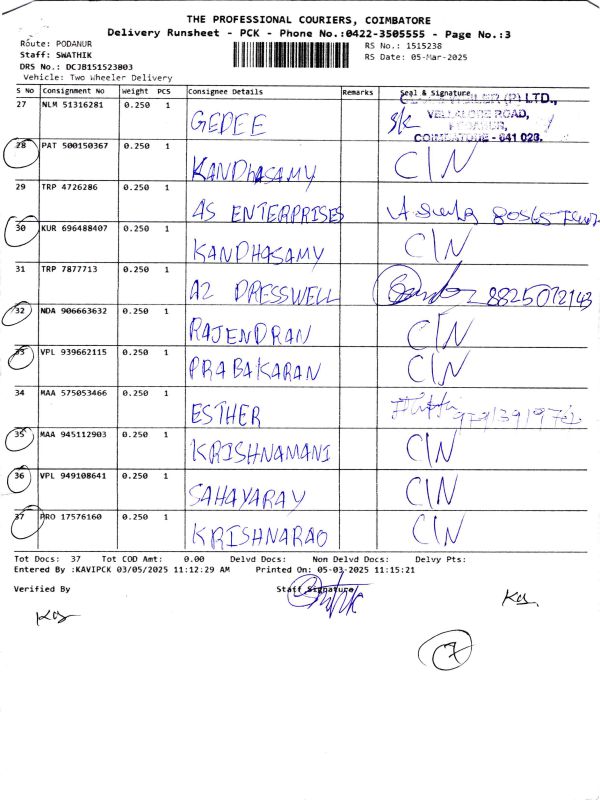 THE PROFESSIONAL COURIERS, COIMBATORE
Delivery Runsheet - PCK - Phone No.:0422-3505555 - Page No.:3
Route: PODANUR
RS No.: 1515238
Staff: SWATHIK
RS Date: 05-Mar-2025
DRS No.: DCJB151523803
Vehicle: Two Wheeler Delivery
S No Consignment No Weight PCS Consignee Details Remarks Seal & Signature
27 NLM 51316281 0.250 1 GEDEE
(P) LTD.,
VELLALORE ROAD,
COIMBATORE - 641 023.
28 PAT 500150367 0.250 1 KANDhASAMY C/N
29 TRP 4726286 0.250 1 AS ENTERPRISES
30 KUR 696488407 0.250 1 KANDHASAMY C/N
31 TRP 7877713 0.250 1 A2 DRESSWELL 8825072143
32 NDA 906663632 0.250 1 RAJENDRAN C/N
33 VPL 939662115 0.250 1 PRABAKARAN C/N
34 MAA 575053466 0.250 1 ESTHER
35 MAA 945112903 0.250 1 KRISHNAMANI C/N
36 VPL 949108641 0.250 1 SAHAYARAY C/N
37 PRO 17576160 0.250 1 KRISHNARAO C/N
Tot Docs: 37 Tot COD Amt: 0.00 Delvd Docs: Non Delvd Docs: Delvy Pts:
Entered By :KAVIPCK 03/05/2025 11:12:29 AM Printed On: 05-03-2025 11:15:21
Verified By Staff Signature
7